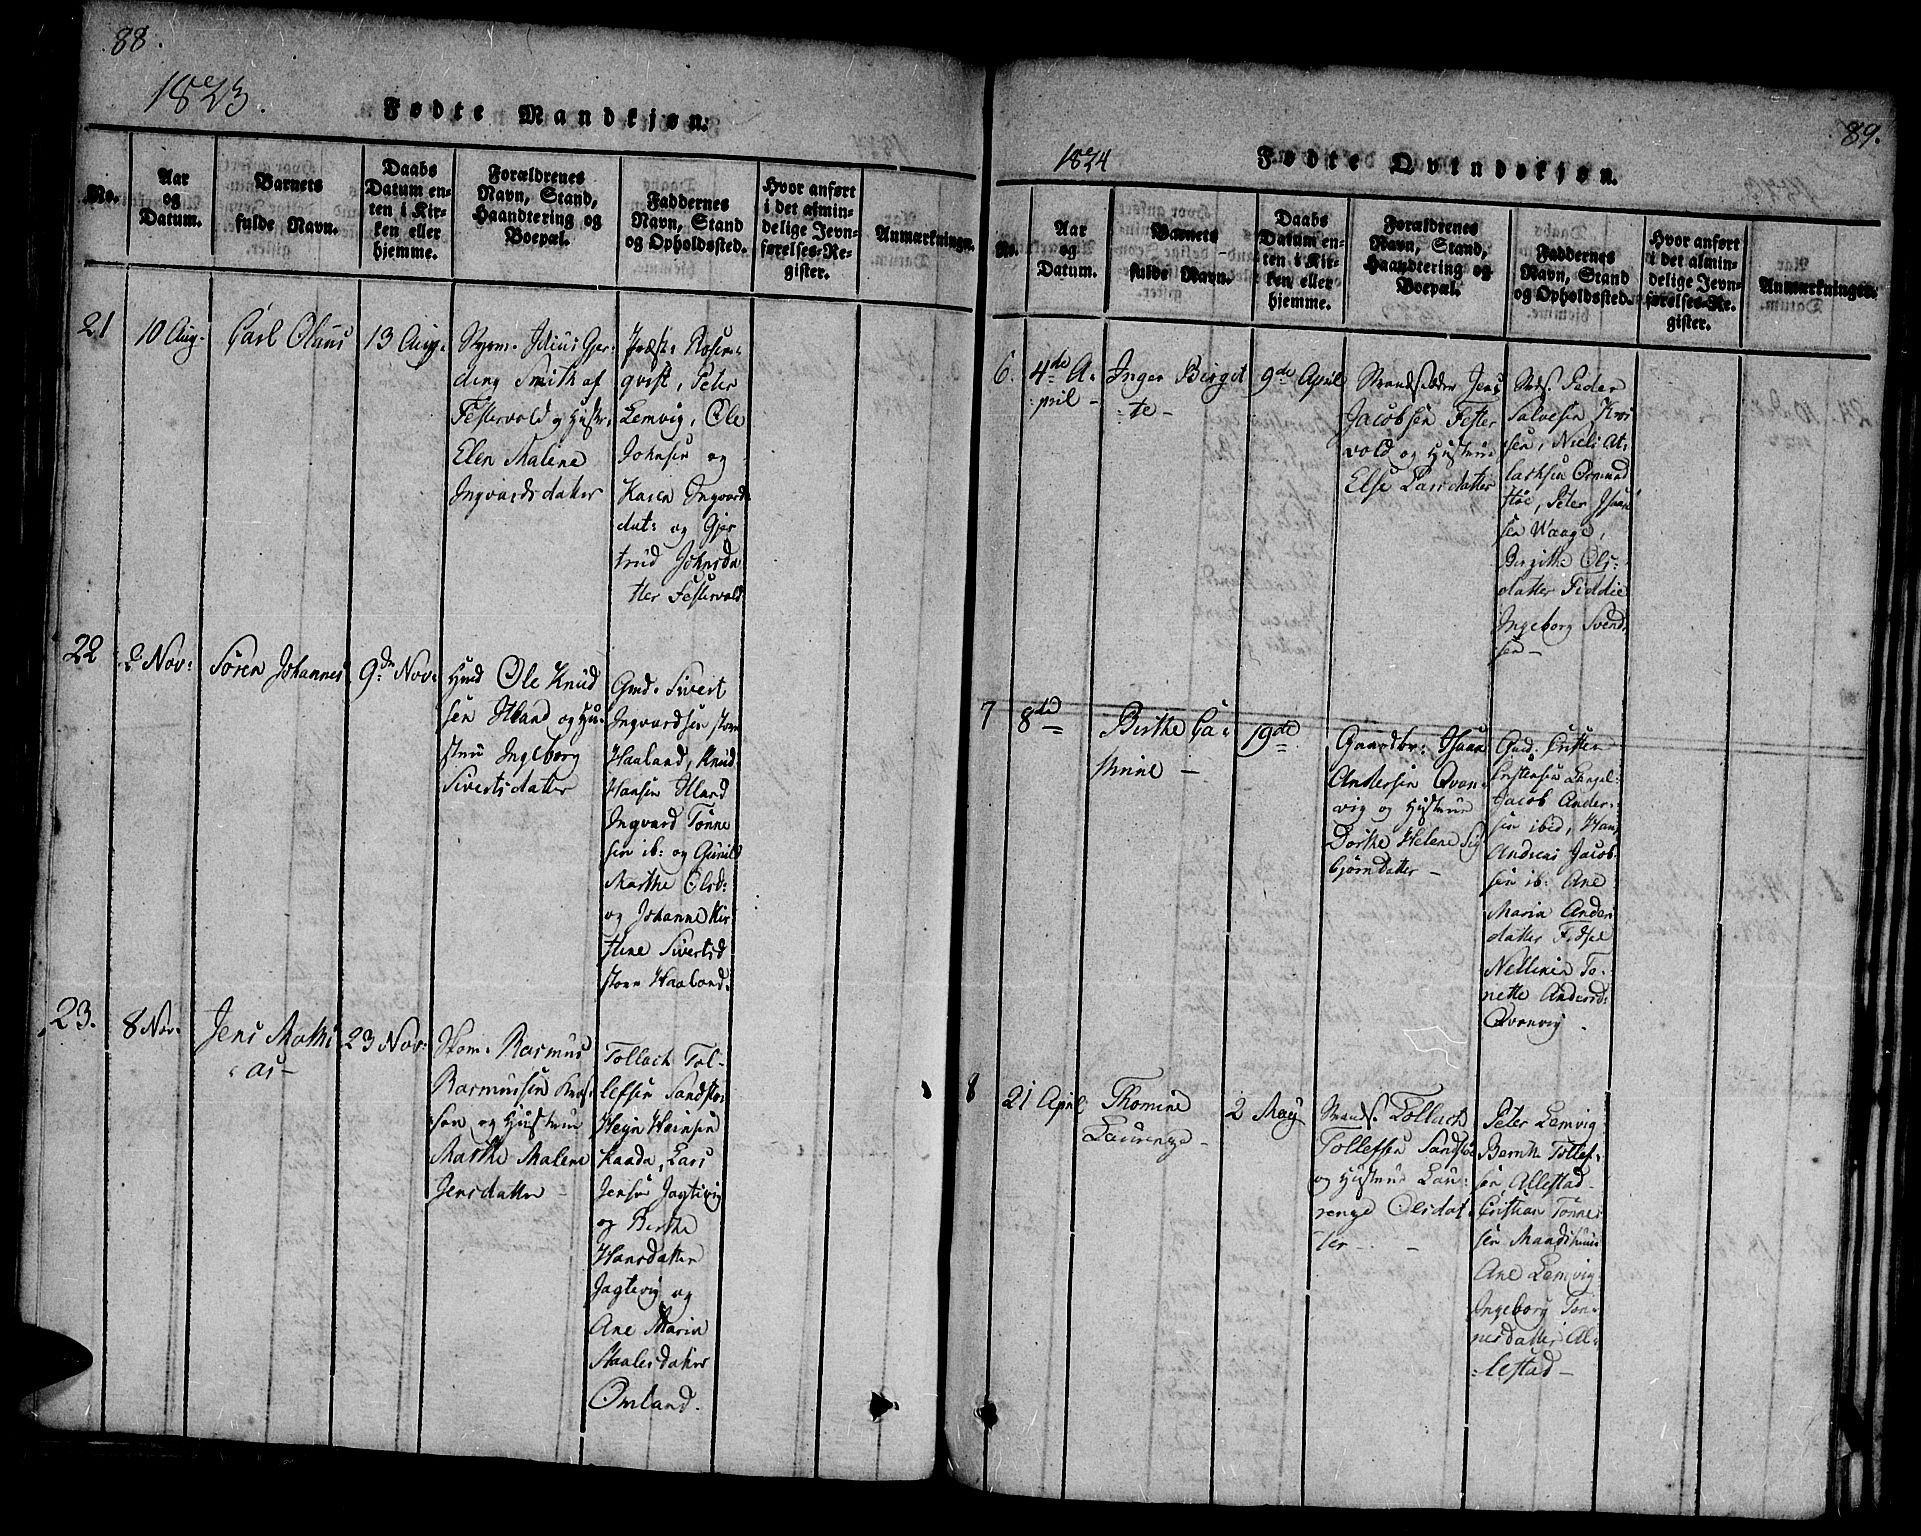 88.
1823.
Fødte Mandkjøn.
No.
Aar
og
Datum.
Barnets
fulde Navn.
Daabs
Datum en-
ten i Kir-
ken eller
hjemme.
Forældrenes
Navn, Stand,
Haandtering og
Boepæl.
Faddernes
Navn, Stand
og Opholdssted.
Hvor anført
i det almin-
delige Jevn-
førelses-Re-
gister.
Anmærkninger.
21
10 Aug.
Carl Olaus
13 Aug.
Gjer-
ding Smith af
Festervold og Hustr.
Elen Malene
Ingvardsdatter
Præst: Rosen-
qvist, Peter
Lemvig, Ole
Johnsen og
Karen Ingvard
dat: og Gjer
trud Johnsda
tter Festervold
22
2 Nov:
Søren Johannes
9de Nov:
Ole Knud
sen Hland og Hu-
stru Ingeborg
Sivertsdatter
Gmd. Sivert
Ingvardsen store
Haaland, Knud
Hansen Hland
Ingvard Tønne
sen ib: og Gunild
Marthe Olsd:
og Johanne Kir
stine Sivertsd
store Haaland.
23.
8 Nov.
Jens Mathi
as-
23 Nov:
Skom. Rasmus
Rasmussen
og Hustrue
Marthe Malene
Jensdatter
Tollach Tol-
lefsen Sandstø
Heyn Heinsen
Kaada, Lars
Jensen Jagtevig
og Berthe
Hansdatter
Jagtevig og
Ane Maria
Staalesdatter
Omland.
89.
1824
Fødte Qvindekjøn.
No.
Aar
og
Datum.
Barnets
fulde Navn.
Daabs
Datum en-
ten i Kir-
ken eller
hjemme.
Forældrenes
Navn, Stand,
Haandtering og
Boepæl.
Faddernes
Navn, Stand
og Opholdssted.
Hvor anført
i det almin-
delige Jevn-
førelses-Re-
gister.
Anmærkninger.
6.
4de A-
pril -
Inger Birgit
te -
9de April
Strandsidder Jens
Jacobsen Fester
vold og Hustrue
Else Larsdatter
Strds. Peder
Salvesen
sen, Niels At-
lachsen Ormmod
støe, Peter Isaac
sen Waage,
Birgithe Ols-
datter Fiddie
Ingeborg Svend
sen -
7
8de
Birthe Ca-
thrine -
19de
Gaardbr: Isaac
Andersen Qvan-
vig og Hustrue
Dorthe Helene Sig
bjørndatter -
Gmd. Cristen
Cristensen
Jacob Ander-
sen ibid, Hans
Andreas Jacob
sen ib: Ane
Maria Anders
datter Fidsel
Nelline To-
nette Andersd:
Qvanvig.
8
21 April
Thomine
Laurenze -
2 May
Strands. Tollach
Tollefsen Sandstøe
og Hustrue Lau-
renze Olsdat-
ter -
Peter Lemvig
Bernth Tollef-
sen Allestad
Cristian Tønne
sen
Ane Lemvig
Ingeborg Tøn-
nesdatter Al-
lestad -